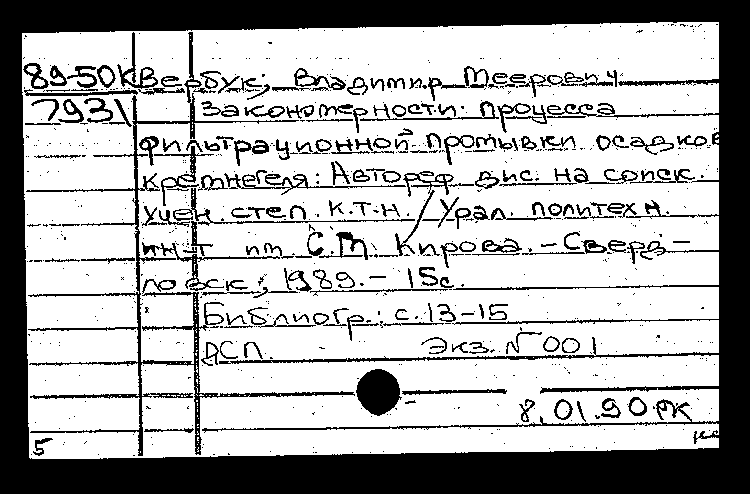 89-50к Вербук, Владимир Меерович
7931 Закономерности процесса
фильтрационной промывки осадков
кремнегеля: Автореф. дис. на соиск.
учен. степ. к.т.н. / Урал. политехн.
ин-т им. С.М. Кирова. - Сверд-
ловск, 1989. - 15с.
Библиогр.: с. 13-15
ДСП. Экз. № 001
8.01.90 РК
5